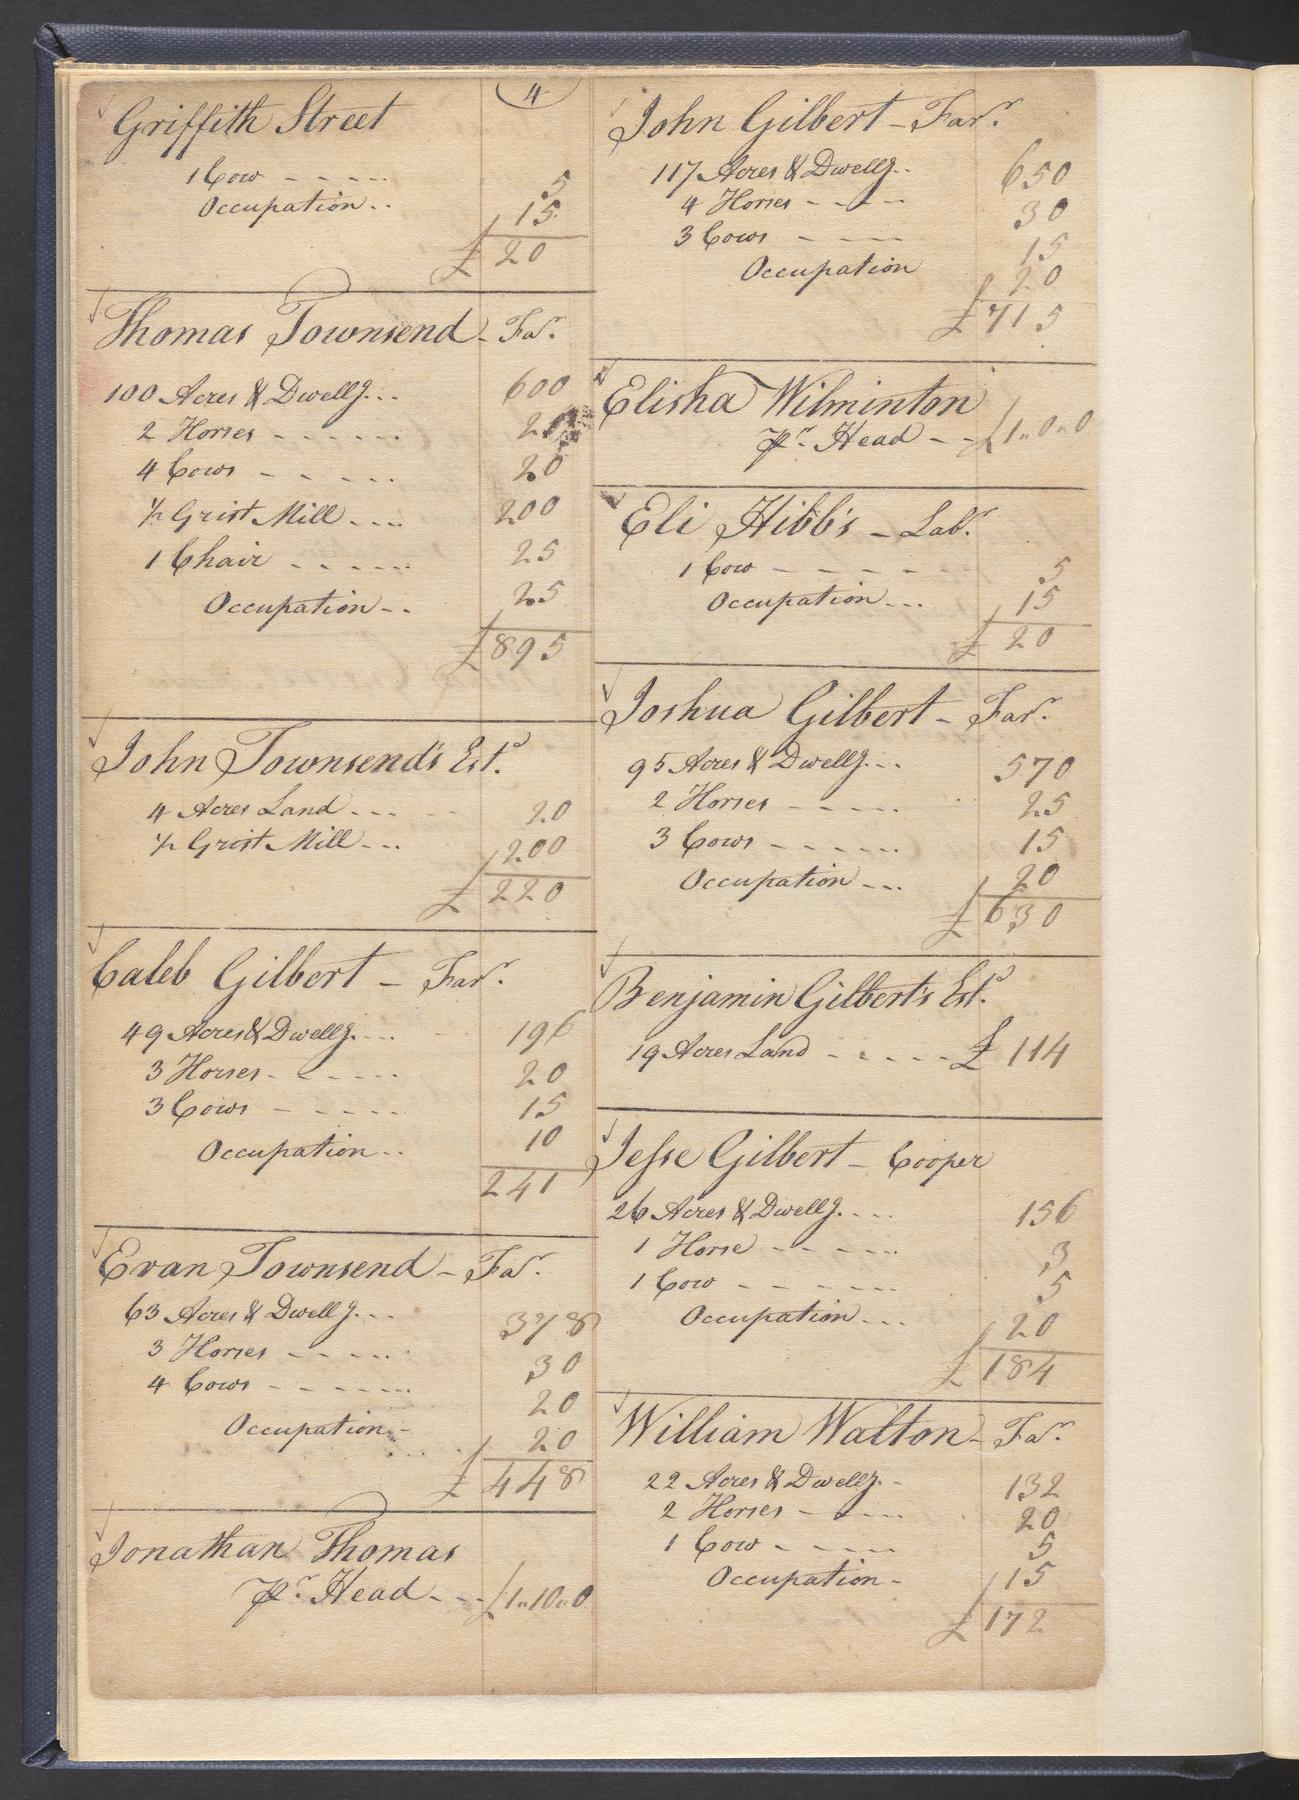 4
Griffith Street
1 Cow - - - - - 5
Occupation - - 15
£ 20
Thomas Townsend - Far.
100 Acres & Dwellg. - - 600
2 Horses - - - - - - 20
4 Cows - - - - - 20
1/2 Grist Mill - - - - 200
1 Chair - - - - - - 25
Occupation - - 25
£ 895
John Townsend's Est.
4 Acres Land - - - 20
1/2 Grist Mill - - - 200
£ 220
Caleb Gilbert - Far.
49 Acres & Dwellg. - - - 196
3 Horses - - - - - 20
3 Cows - - - - - 15
Occupation - - 10
241
Evan Townsend - Far.
63 Acres & Dwellg. - - 378
3 Horses - - - - - 30
4 Cows - - - - - - 20
Occupation - 20
£ 448
Jonathan Thomas
Pr. Head - - - £1„10„0
John Gilbert - Far.
117 Acres & Dwellg. - 650
4 Horses - - - - 30
3 Cows - - - - 15
Occupation 20
£ 715
Elisha Wilminton
Pr. Head - - £1„0„0
Eli Hibb's - Labr.
1 Cow - - - - - - 5
Occupation - - - 15
£ 20
Joshua Gilbert - Far.
95 Acres & Dwellg. - - 570
2 Horses - - - - - 25
3 Cows - - - - - - 15
Occupation - - - 20
£ 630
Benjamin Gilbert's Est.
19 Acres Land - - - - - £ 114
Jesse Gilbert - Cooper
26 Acres & Dwellg. - - - 156
1 Horse - - - - - 3
1 Cow - - - - - - 5
Occupation - - - 20
£ 184
William Walton - Far.
22 Acres & Dwellg. - 132
2 Horses - - - - 20
1 Cow - - - - - 5
Occupation - 15
£ 172